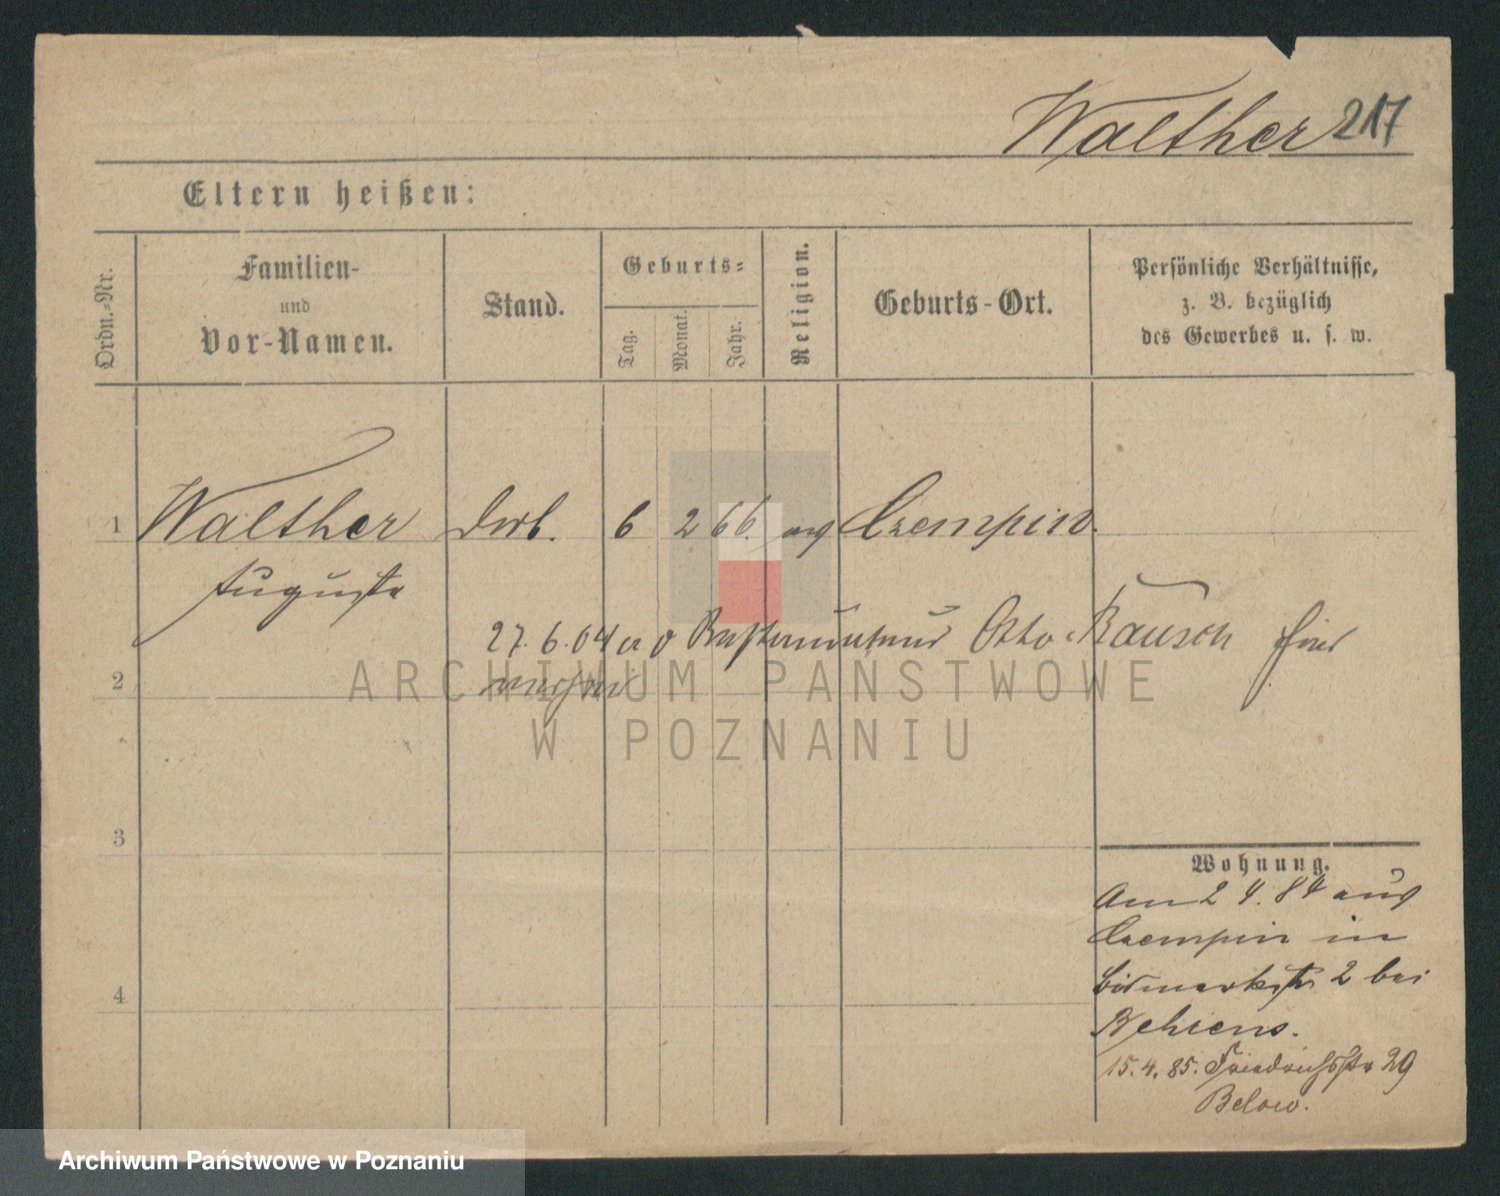 Walther 217
Eltern heißen:
Ordn.-Nr.
Familien-
und
Vor-Namen.
Stand.
Geburts-
Tag.
Monat.
Jahr.
Religion.
Geburts-Ort.
Persönliche Verhältnisse,
z. B. bezüglich
des Gewerbes u. s. w.
1 Walther 6 2 66. evg Czempin.
Auguste
27.6.04 Otto Rausch hier
2
ARCHIWUM PAŃSTWOWE
W POZNANIU
3
Wohnung.
Am 2 4. 84 aus
Czempin in
4
Bismarckstr 2 bei
Behrens.
15.4.85. Friedrichsstr 29
Below.
Archiwum Państwowe w Poznaniu